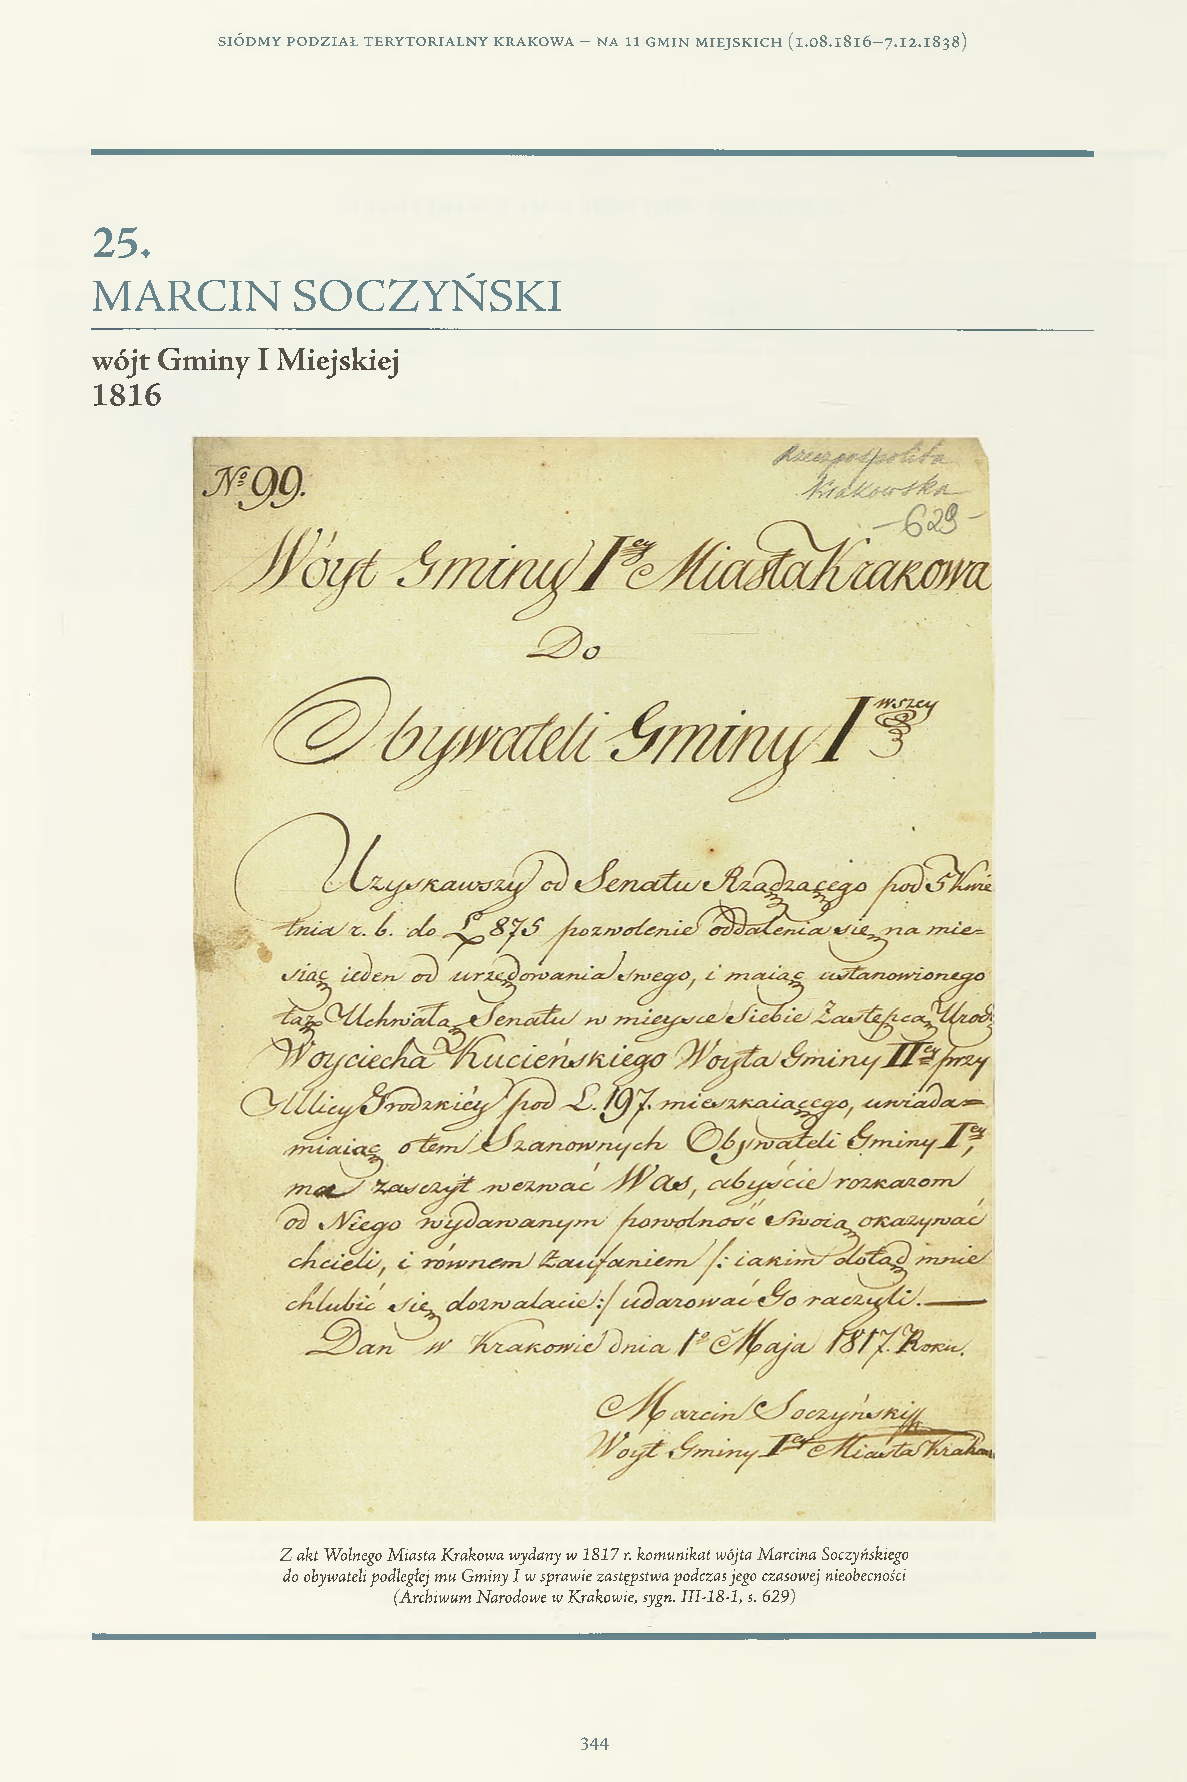 SIÓDMY PODZIAŁ TERYTORIALNY KRAKOWA – NA 11 GMIN MIEJSKICH (1.08.1816–7.12.1838)
25.
MARCIN SOCZYŃSKI
wójt Gminy I Miejskiej
1816
Rzeczpospolita
Krakowska
No 99.
– 629 –
Wóyt Gminy Iey Miasta Krakowa
Do
Obywateli Gminy Iwszey
Uzyskawszy od Senatu Rządzącego pod 5 Kwie
tnia r. b. do L 875 pozwolenie oddalenia się na mie=
siąc ieden od urzędowania swego, i maiąc ustanowionego
tąż Uchwałą Senatu w mieysce Siebie Zastępcą Urod:
Woyciecha Kucieńskiego Woyta Gminy IIey przy
Ulicy Grodzkiéy pod L. 197. mieszkaiącego, uwiada=
miaiąc o tem Szanownych Obywateli Gminy Iey,
ma zaszczyt wezwać Was, abyście rozkazom
od Niego wydawanym powolność swoią okazywać
chcieli, i równem Zaufaniem /: iakim dotąd mnie
chlubić się dozwalacie :/ udarować Go raczyli. —
Dan w Krakowie dnia 1o Maja 1817. Roku.
Marcin Soczyński
Woyt Gminy Iey Miasta Krakow
Z akt Wolnego Miasta Krakowa wydany w 1817 r. komunikat wójta Marcina Soczyńskiego
do obywateli podległej mu Gminy I w sprawie zastępstwa podczas jego czasowej nieobecności
(Archiwum Narodowe w Krakowie, sygn. III-18-1, s. 629)
344